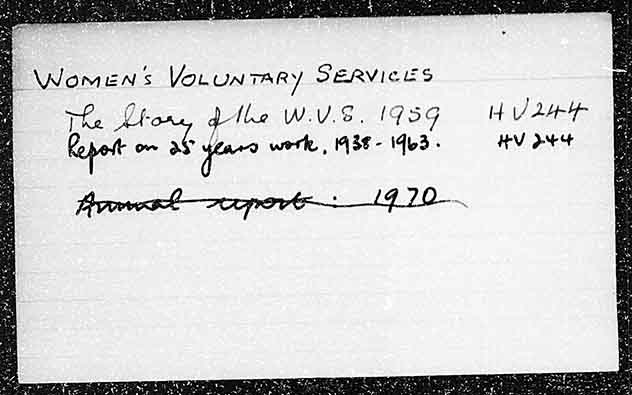 WOMEN'S VOLUNTARY SERVICES
The Story of the W.V.S. 1959 HV244
Report on 25 years work. 1938-1963. HV244
Annual report : 1970